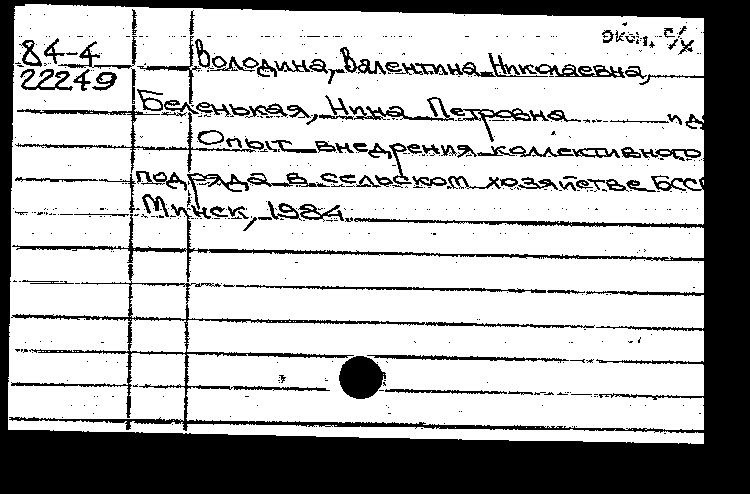 экон. с/х
84-4
22249
Володина, Валентина Николаевна,
Беленькая, Нина Петровна
Опыт внедрения коллективного
подряда в сельском хозяйстве БССР
Минск, 1984